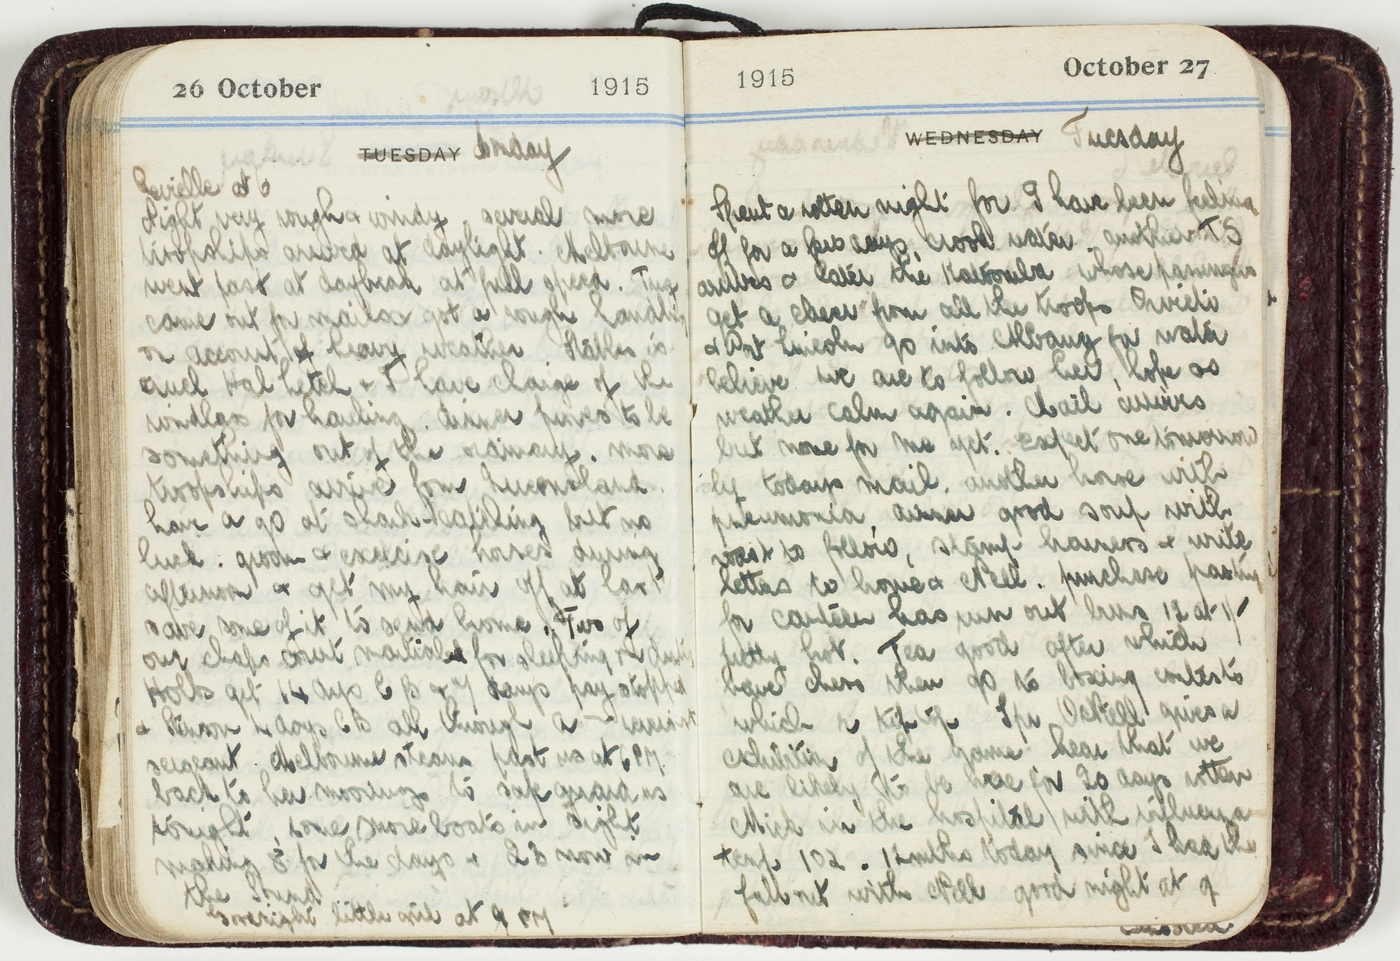 26 October 1915
TUESDAY Monday
Reveille at 6
Light very rough & windy. several more
troopships arrived at daylight. Melbourne
went past at daybreak at full speed. Tug
came out for mails & got a rough handling
on account of heavy weather. Rather is
cruel Hal & I have charge of the
windlass for hauling. dinner proves to be
something out of the ordinary. more
troopships arrive from Queensland.
have a go at shark-catching but no
luck. groom & exercise horses during
afternoon & get my hair off at last
save some of it to send home. Two of
our chaps court martialed for sleeping on duty
Holls get 14 days C B & 7 days pay stopped
& days CB all through a
sergeant. Melbourne steams past us at 5 PM
back to her moorings to safe guard us
tonight, some more boats in sight
making 3 for the day & 28 now in
the Sound
Goodnight little girl at 9 PM
1915 October 27
WEDNESDAY Tuesday
Spent a rotten night for I have been feeling
off for a few days, crook water. another TS
arrives & later the Katoomba whose passengers
get a cheer from all the troops
& Port Lincoln go into Albany for water
believe we are to follow her, hope so
weather calm again. Mail arrives
but none for me yet. expect one tomorrow
by todays mail. another horse with
pneumonia, dinner good soup with
roast to follow, stamp & write
letters to home & Nell. purchase pastry
for canteen has run out buns 12 at 1/
pretty hot. Tea good after which
have chess then go to boxing contests
which is tip top Spr ONeill gives a
exhibition of the game hear that we
are likely to be here for 20 days rotten
Mick in the hospital with influenza
temp 102. 12 mths today since I had the
fall out with Nell good night at 9